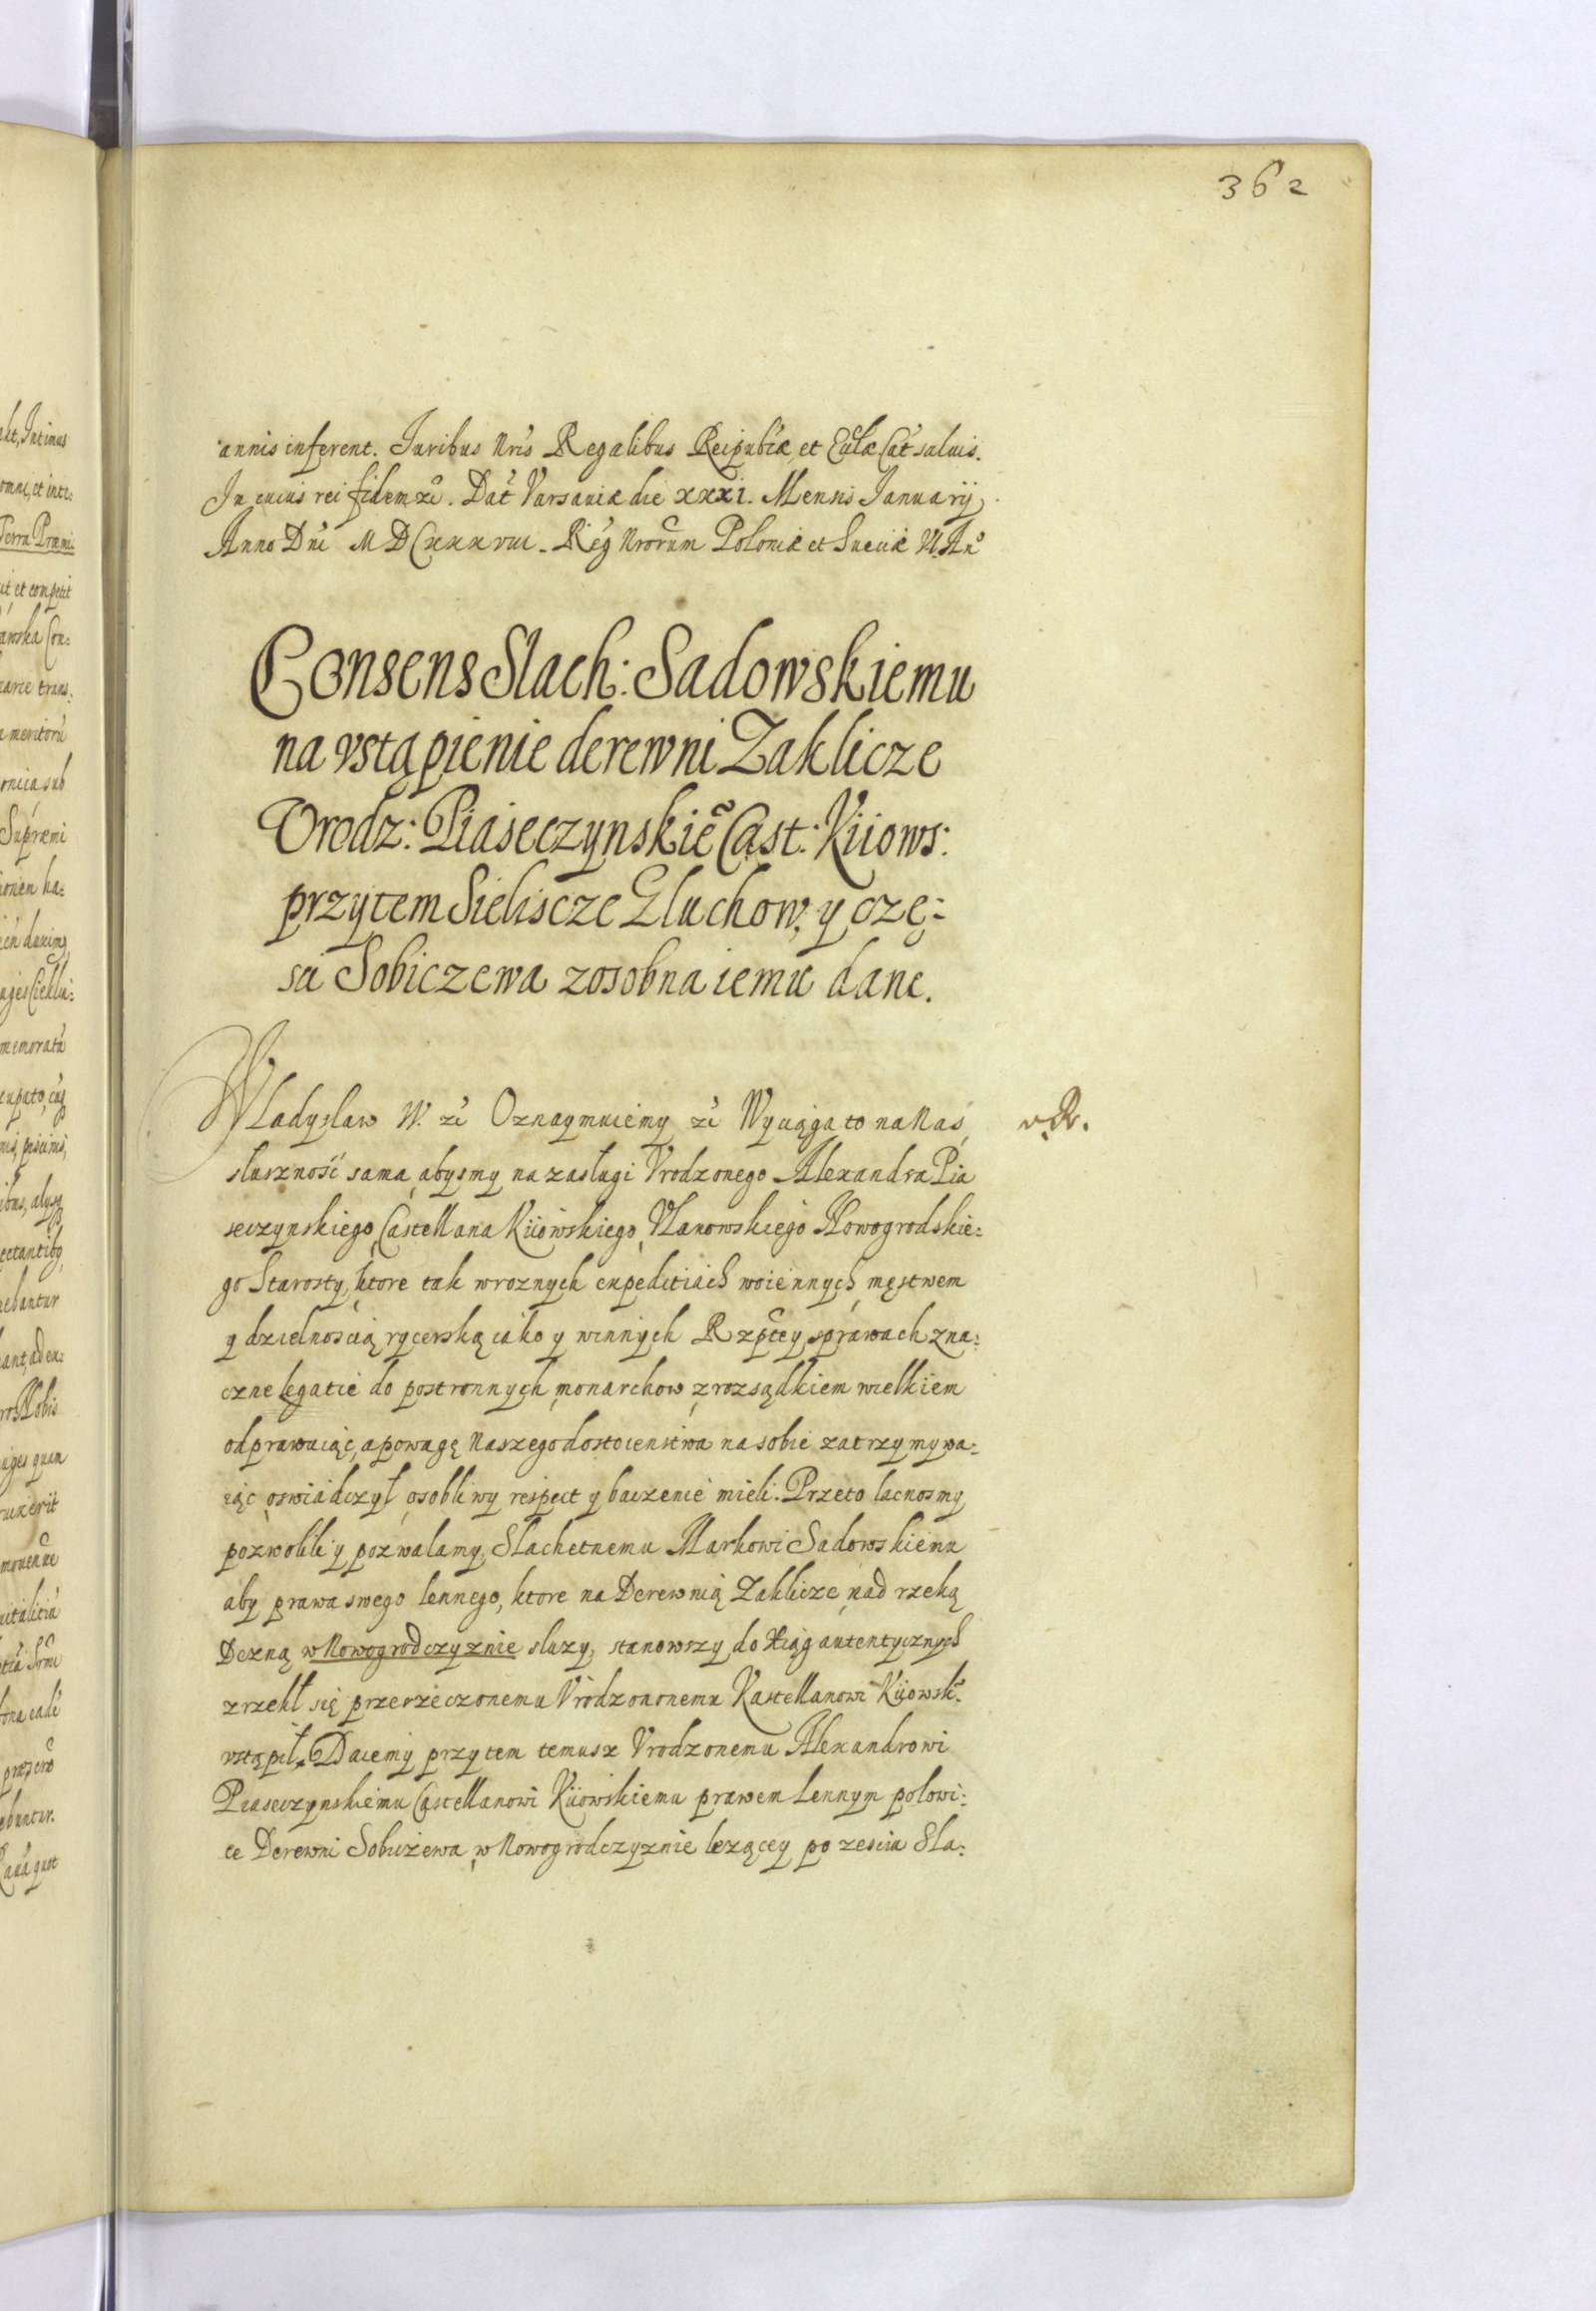 362
annis inferent. Juribus Nris Regalibus Reipubcæ, et Ecclæ Cat salvis.
In cuius rei fidem etc. Dat Varsaviæ die xxxi. Mensis Januarij
Anno Dni MDCxxxviii. Reg Nrorum Poloniæ et Sueciæ VI. An°
Consens Slach: Sadowskiemu
na vstąpienie derewni Zaklicze
Vrodz: Piaseczynskie° Cast: Kiiows:
przytem Sieliscze Gluchow, y czę:
sci Sobiczewa zosobna iemu dane.
Wladyslaw IV. etc Oznaymuiemy etc Wyciąga to na Nas
v. R.
sluszność sama, abysmy na zasługi Vrodzonego Alexandra Pia
seczynskiego, Castellana Kiiowskiego, Vlanowskiego Nowogrodskie:
go Starosty, ktore tak w roznych expeditiach woiennych, męstwem
y dzielnoscią rycerską iako y w innych Rzptey sprawach zna:
czne legatie do postronnych monarchow, z rozsądkiem wielkiem
odprawuiąc, a powagę Naszego dostoienstwa na sobie zatrzymywa:
iąc oswiadczył, osobliwy respect y baczenie mieli. Przeto lacnosmy
pozwolili y pozwalamy, Slachetnemu Markowi Sadowskiemu
aby prawa swego lennego, ktore na Derewnią Zaklicze, nad rzeką
Dezną w Nowogrodczyznie sluzy, stanowszy do Xiąg autentycznych
zrzekł się przerzeczonemu Vrodzononemu Kastellanowi Kijowsk°.
vstąpił. Daiemy przytem temusz Vrodzonemu Alexandrowi
Piaseczynskiemu Castellanowi Kiiowskiemu prawem Lennym polowi:
ce Derewni Sobiczewa, w Nowogrodczyznie lezącey po zesciu Sla: